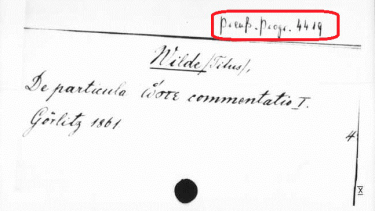 Preuß. Progr. 4419
Wilde (Titus).
De particula ὥστε commentatio I.
Görlitz 1861.
4
IX